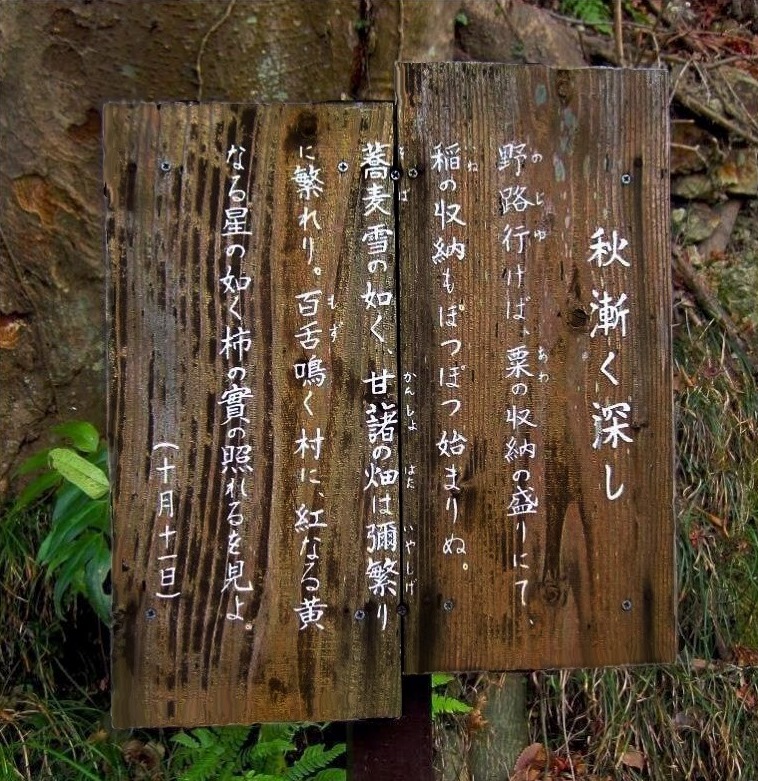 秋漸く深し
野路行けば、粟の収納の盛りにて、
稲の収納もぽつぽつ始まりぬ。
蕎麦雪の如く、甘藷の畑は彌繁り
に繁れり。百舌鳴く村に、紅なる黄
なる星の如く柿の實の照れるを見よ。
(十月十一日)